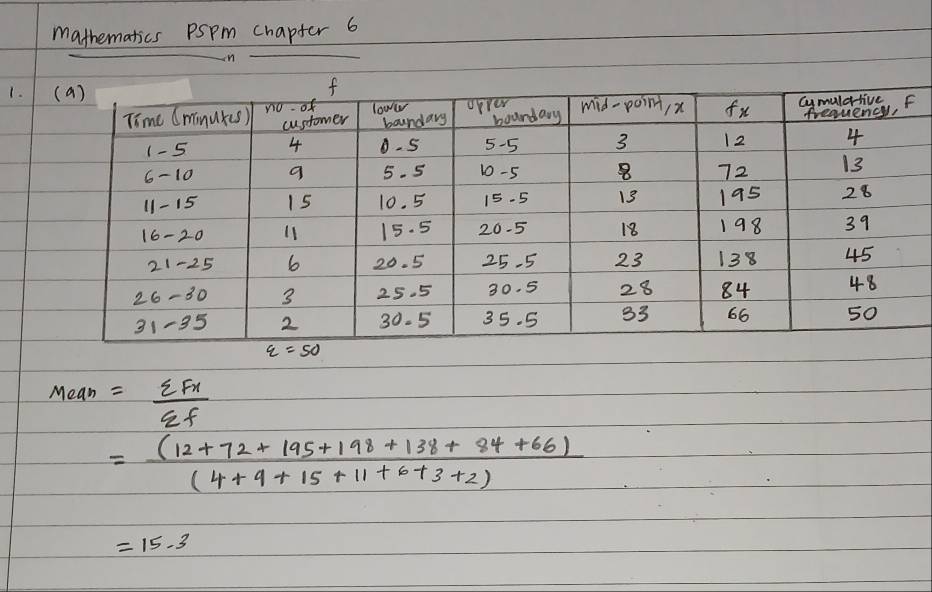 Mathematics PSPM Chapter 6
1. (a)
f
Time (minutes) no. of customer lower boundary upper boundary mid-point, x fx Cumulative frequency, F
1-5 4 0.5 5.5 3 12 4
6-10 9 5.5 10.5 8 72 13
11-15 15 10.5 15.5 13 195 28
16-20 11 15.5 20.5 18 198 39
21-25 6 20.5 25.5 23 138 45
26-30 3 25.5 30.5 28 84 48
31-35 2 30.5 35.5 33 66 50
Σ = 50
Mean = ΣFx
Σf
= (12+72+195+198+138+84+66)
(4+9+15+11+6+3+2)
= 15.3